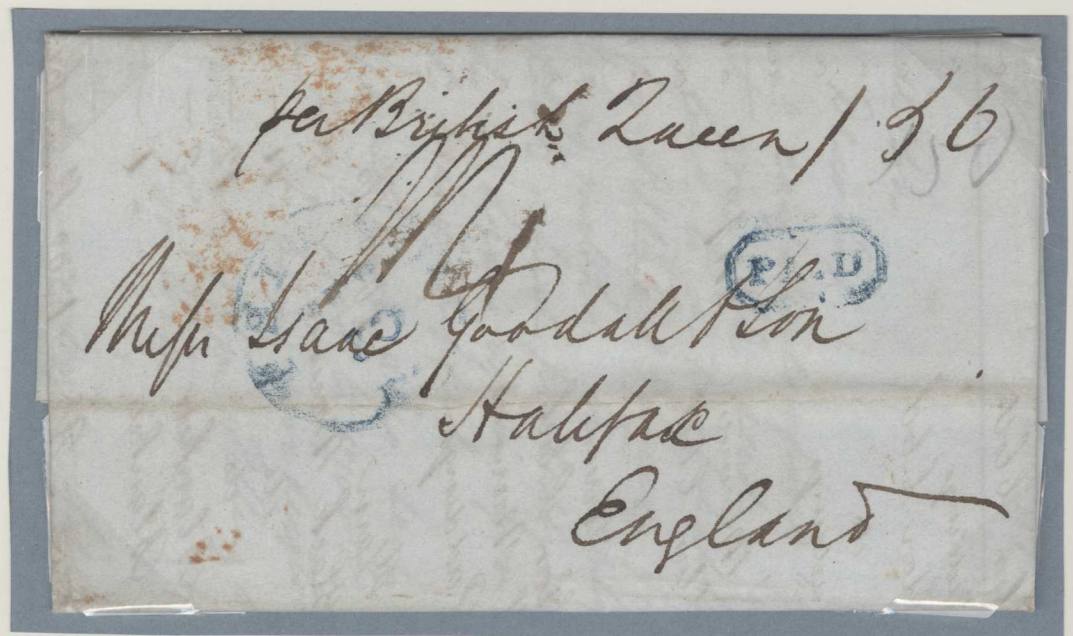 per British Queen /
PAID
Messrs Isaac Goodall & Son
Halifax
England